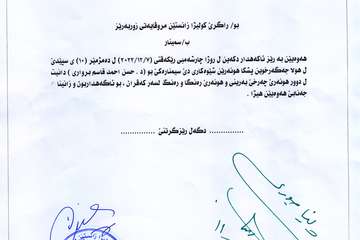 بو/ راگرێ کولیژا زانستێن مروڤایەتی زوربەرێز
ب/ سمینار
هەوەیێن بە رێز ئاگەهدار دکەین ل روژا چارشەمبی رێکەفتی (٢٠٢٢/١٢/٧) ل دەمژمێر (١٠) ی سپێدێ
ل هولا جەگەرخوین پشکا هونەرێن شێوەکاری دێ سیمنارەکێ بو (د. حسن احمد قاسم برواری) دانیت
ل دوور هونەرێ چەرخێ بەرینی و هونەرێ رەنگا و رەنگ لسەر کەڤران ، بو ئاگەهداربون و زانینا
جەنابێ هەوەیێن هێژا .
............... دگەل رێزگرتنێ ...............